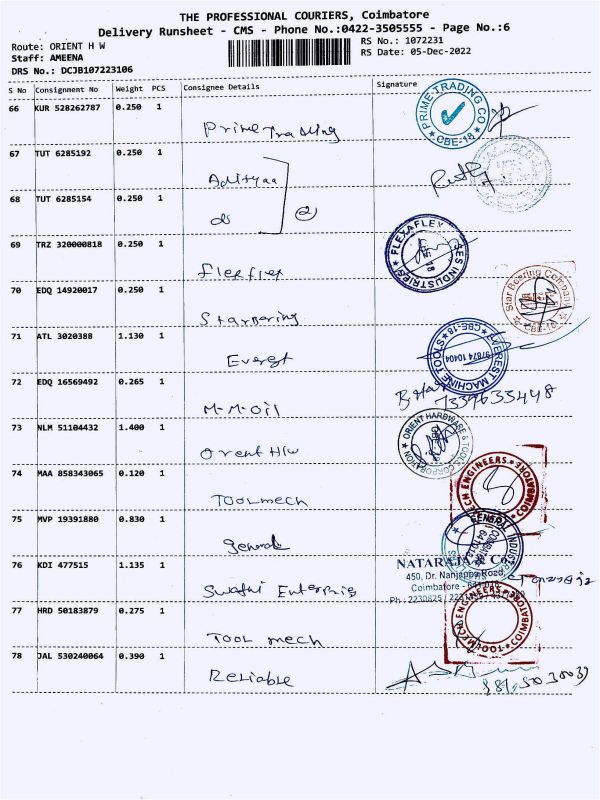 THE PROFESSIONAL COURIERS, Coimbatore
Delivery Runsheet - CMS - Phone No.:0422-3505555 - Page No.:6
Route: ORIENT H W
Staff: AMEENA
DRS No.: DCJB107223106
RS No.: 1072231
RS Date: 05-Dec-2022
S No Consignment No Weight PCS Consignee Details Signature
66 KUR 528262787 0.250 1 Prime Trading
PRIME TRADING CO
CBE-18
67 TUT 6285192 0.250 1 Adityaa
68 TUT 6285154 0.250 1 do 2
69 TRZ 320000818 0.250 1 flexflex
FLEXAFLEX INDUSTRIES
70 EDQ 14920017 0.250 1 Starboring
Star Boering Company
CBE-18
71 ATL 3020388 1.130 1 Everest
EVEREST MACHINE TOOLS
CBE-18
97874 10404
72 EDQ 16569492 0.265 1 M.M.Oil
7339633448
73 NLM 51104432 1.400 1 Orent H/w
ORIENT HARDWARE & TOOLS CORPORATION
74 MAA 858343065 0.120 1 Toolmech
ENGINEERS
COIMBATORE
75 MVP 19391880 0.830 1 General
GENERAL INDUSTR
76 KDI 477515 1.135 1 Swathi Enterpris
NATARAJA & Co
450, Dr. Nanjappa Road,
Coimbatore
Ph : 2230825
77 HRD 50183879 0.275 1 Tool mech
ENGINEERS
TOOL
78 JAL 530240064 0.390 1 Reliable